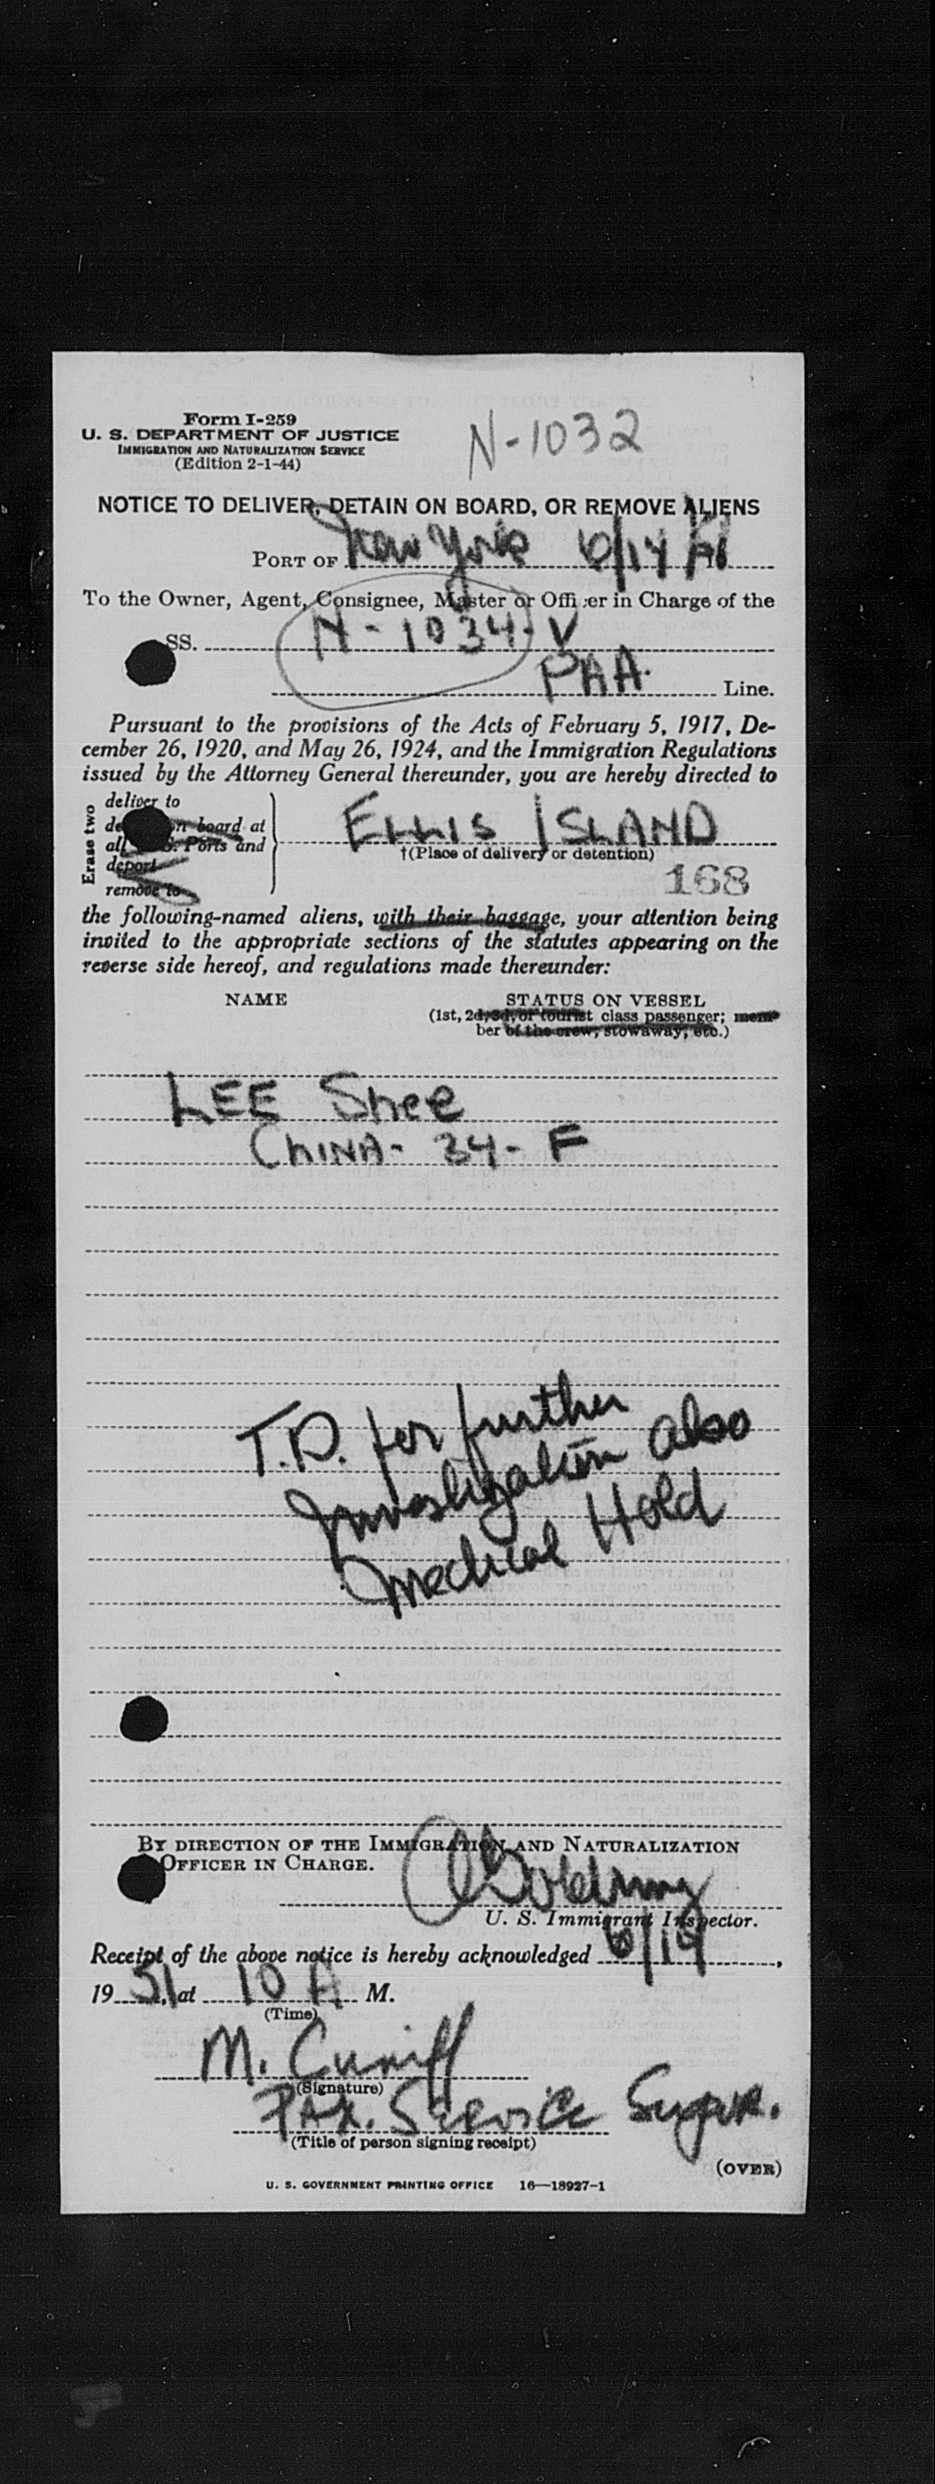 Form I-259
U. S. DEPARTMENT OF JUSTICE
IMMIGRATION AND NATURALIZATION SERVICE
(Edition 2-1-44)
N-1032
NOTICE TO DELIVER, DETAIN ON BOARD, OR REMOVE ALIENS
PORT OF New York 6/14/51
To the Owner, Agent, Consignee, Master or Officer in Charge of the
SS. N-1034-V
PAA. Line.
Pursuant to the provisions of the Acts of February 5, 1917, De-
cember 26, 1920, and May 26, 1924, and the Immigration Regulations
issued by the Attorney General thereunder, you are hereby directed to
Erase two
deliver to
on board at
all Ports and
deport
remove to
ELLIS ISLAND
†(Place of delivery or detention)
168
the following-named aliens, with their baggage, your attention being
invited to the appropriate sections of the statutes appearing on the
reverse side hereof, and regulations made thereunder:
NAME STATUS ON VESSEL
(1st, 2d, 3d, or tourist class passenger; mem-
ber of the crew, stowaway, etc.)
LEE Shee
CHINA- 34- F
T.D. for further
Investigation also
Medical Hold
BY DIRECTION OF THE IMMIGRATION AND NATURALIZATION
OFFICER IN CHARGE.
U. S. Immigrant Inspector.
Receipt of the above notice is hereby acknowledged 6/14,
19 51, at 10 A M.
(Time)
M. Cuniff
(Signature)
PAX. Service Supvr.
(Title of person signing receipt)
(OVER)
U. S. GOVERNMENT PRINTING OFFICE 16—18927-1